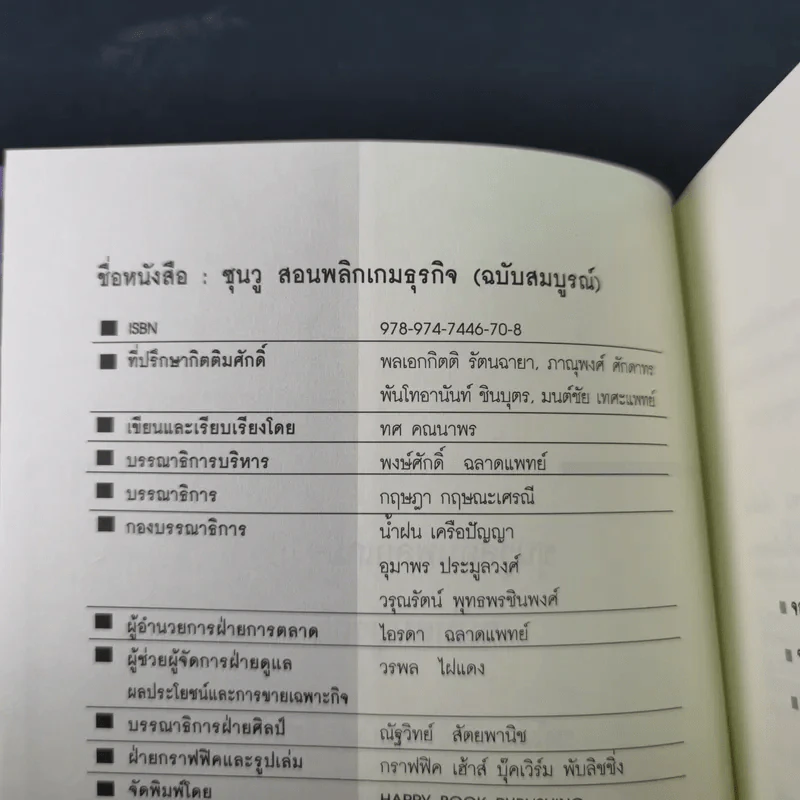 ชื่อหนังสือ : ซุนวู สอนพลิกเกมธุรกิจ (ฉบับสมบูรณ์)
ISBN 978-974-7446-70-8
ที่ปรึกษากิตติมศักดิ์ พลเอกกิตติ รัตนฉายา, ภาณุพงศ์ ศักดาทร
พันโทอานันท์ ชินบุตร, มนต์ชัย เทศะแพทย์
เขียนและเรียบเรียงโดย ทศ คณนาพร
บรรณาธิการบริหาร พงษ์ศักดิ์ ฉลาดแพทย์
บรรณาธิการ กฤษฎา กฤษณะเศรณี
กองบรรณาธิการ น้ำฝน เครือปัญญา
อุมาพร ประมูลวงศ์
วรุณรัตน์ พุทธพรชินพงศ์
ผู้อำนวยการฝ่ายการตลาด ไอรดา ฉลาดแพทย์
ผู้ช่วยผู้จัดการฝ่ายดูแล วรพล ไฝแดง
ผลประโยชน์และการขายเฉพาะกิจ
บรรณาธิการฝ่ายศิลป์ ณัฐวิทย์ สัตยพานิช
ฝ่ายกราฟฟิคและรูปเล่ม กราฟฟิค เฮ้าส์ บุ๊คเวิร์ม พับลิชชิ่ง
จัดพิมพ์โดย HAPPY BOOK PUBLISHING